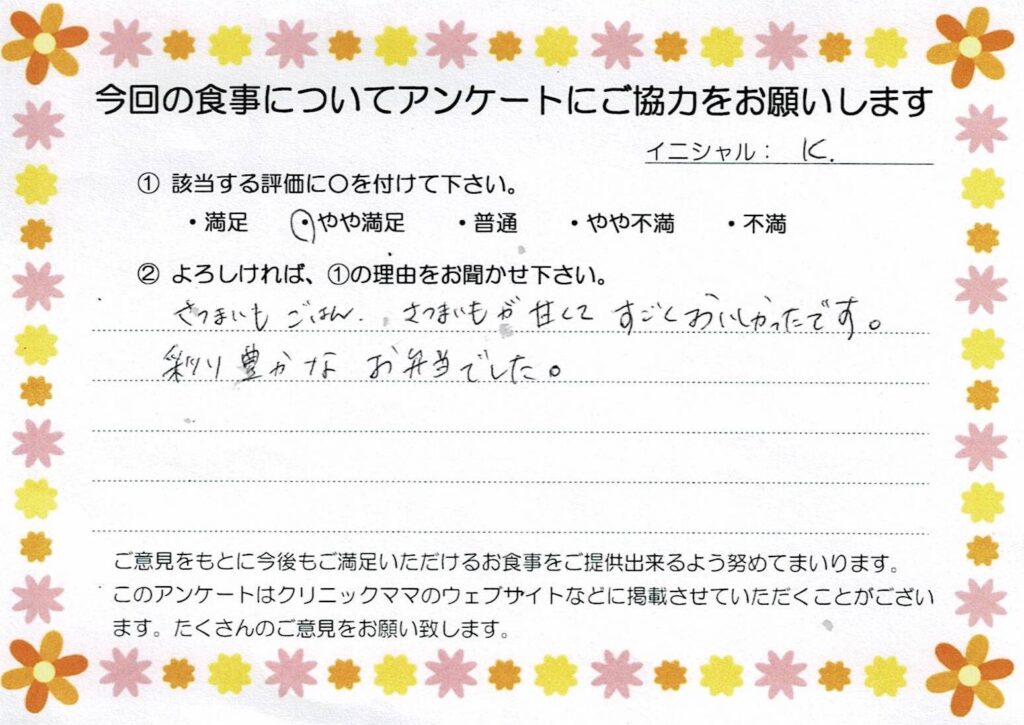 今回の食事についてアンケートにご協力をお願いします
イニシャル： K.
① 該当する評価に〇を付けて下さい。
・満足 ・やや満足 ・普通 ・やや不満 ・不満
② よろしければ、①の理由をお聞かせ下さい。
さつまいもごはん. さつまいもが甘くてすごくおいしかったです。
彩り豊かなお弁当でした。
ご意見をもとに今後もご満足いただけるお食事をご提供出来るよう努めてまいります。
このアンケートはクリニックママのウェブサイトなどに掲載させていただくことがござい
ます。たくさんのご意見をお願い致します。